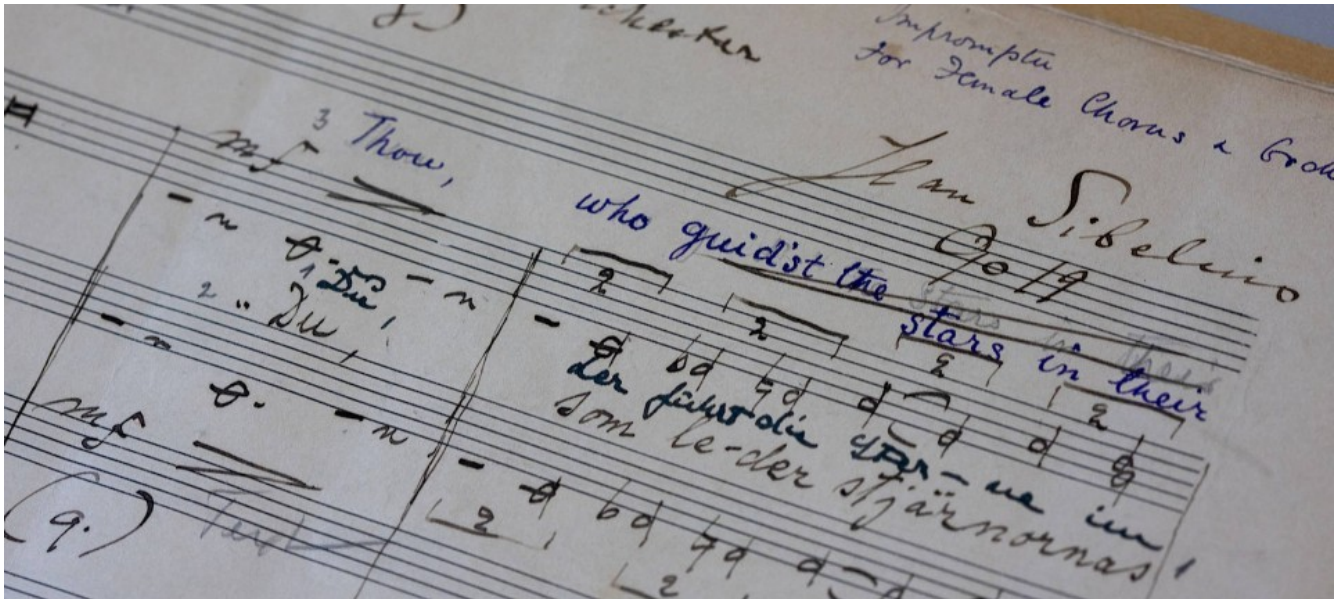 Impromptu
For Female Chorus &
Jean Sibelius
Op 19
mf
3 Thou,
who guid'st the stars in their
1. Du,
2 " Du,
Der führst die Ster-ne im
som le-der stjärnornas
mf